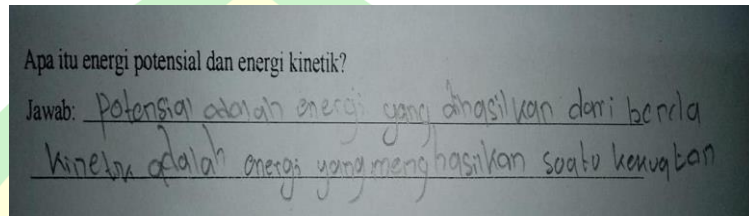 Apa itu energi potensial dan energi kinetik?
Jawab: Potensial adalah energi yang dihasilkan dari benda
Kinetik adalah energi yang menghasilkan suatu kekuatan